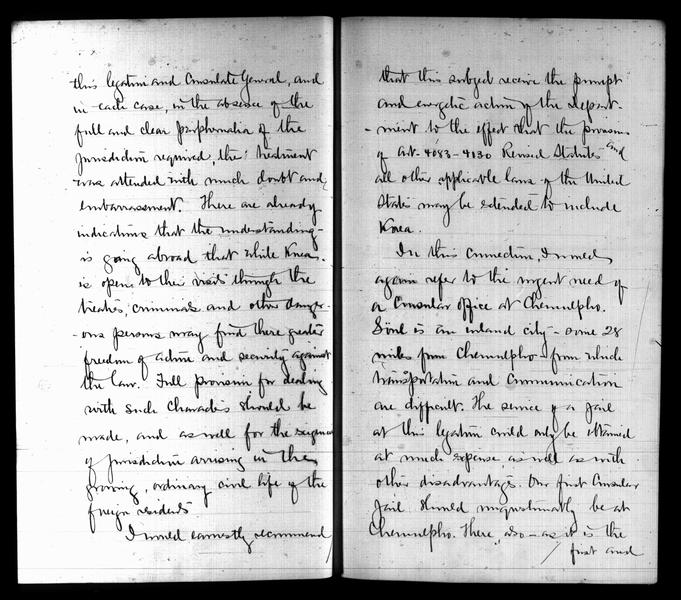 this legation and Consulate General, and
in each case, in the absence of the
full and clear paraphernalia of the
jurisdiction required, the treatment
was attended with much doubt and
embarrassment. There are already
indications that the understanding
is going abroad that while Korea
is open to their visits through the
treaties, criminals and other danger-
-ous persons may find there greater
freedom of action and security against
the law. Full provision for dealing
with such characters should be
made, and as well for the exigencies
of jurisdiction arising in the
growing, ordinary civil life of the
foreign residents
I would earnestly recommend
that this subject receive the prompt
and energetic action of the Depart-
-ment to the effect that the provisions
of Art. 4083-4130 Revised Statutes and
all other applicable laws of the United
States may be extended to include
Korea.
In this connection, I would
again refer to the urgent need of
a Consular office at Chemulpho.
Söul is an inland city - some 28
miles from Chemulpho - from which
transportation and communication
are difficult. The service of a jail
at this legation could only be obtained
at much expense as well as with
other disadvantages. Our first Consular
Jail should unquestionably be at
Chemulpho. There, also - as it is the
first and